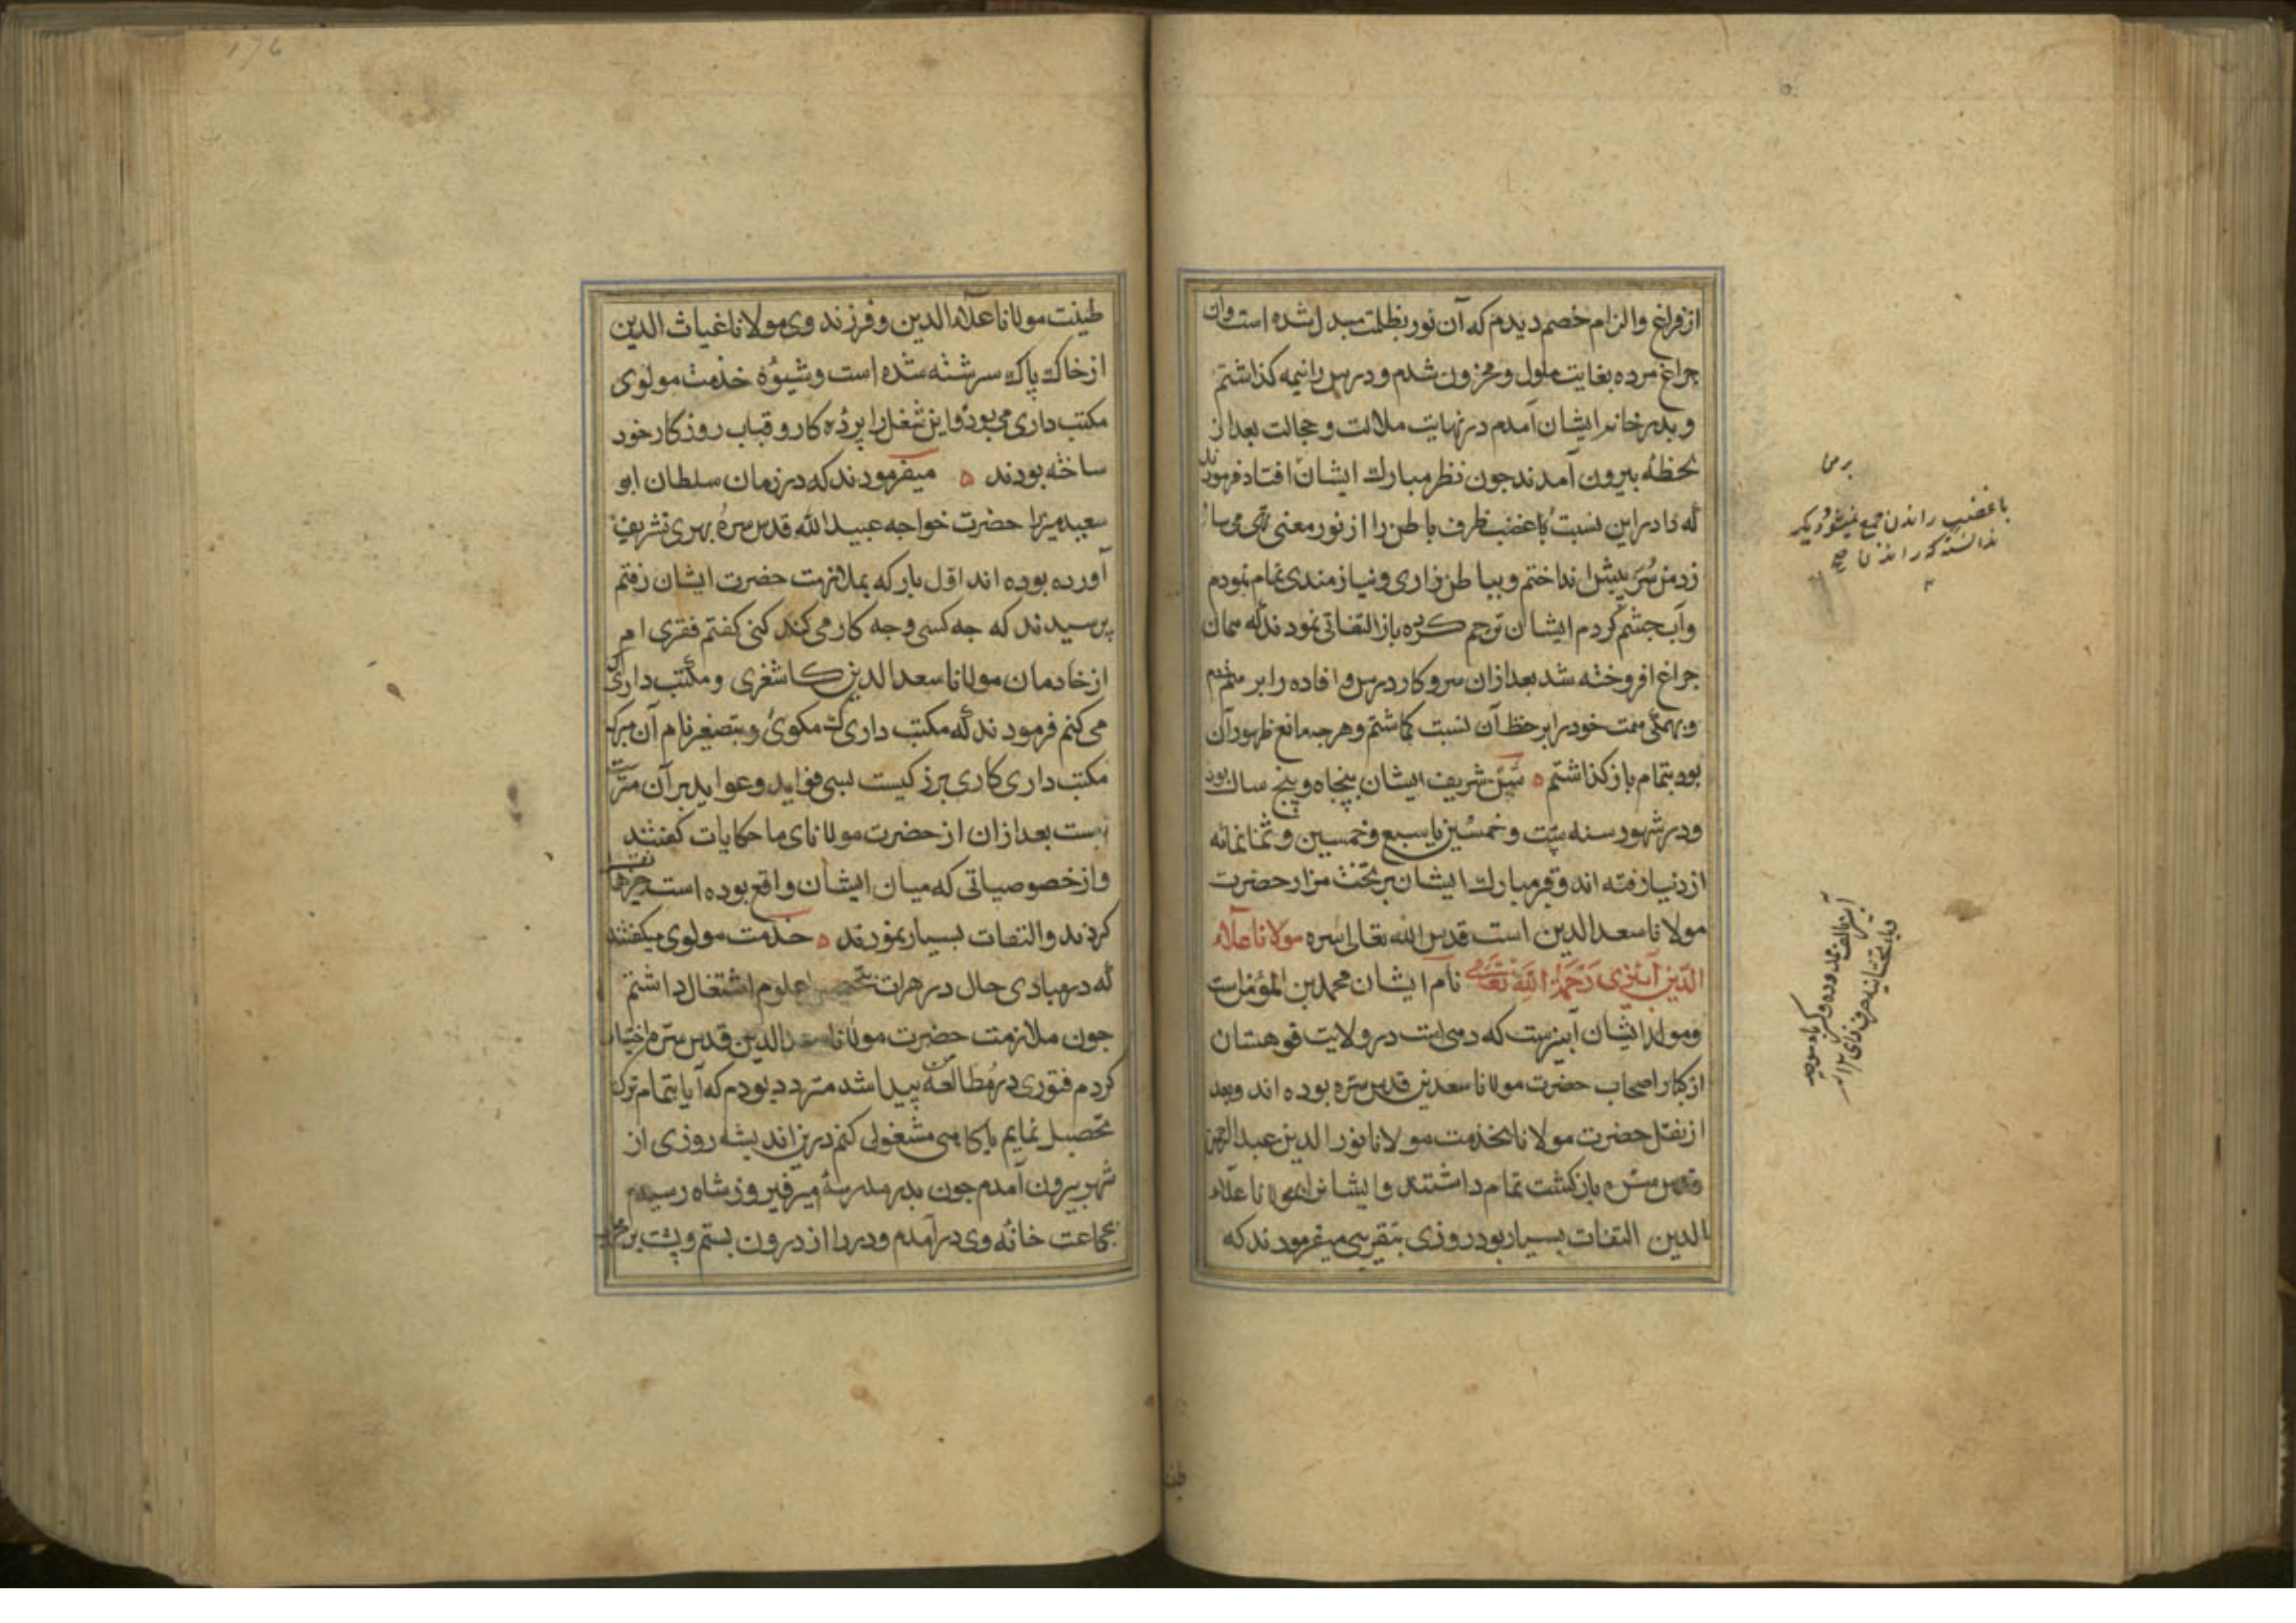 از فراغ و الزام خصم دیدم که آن نور بظلمت مبدل شده است و آن
چراغ مرده بغایت ملول و محزون شدم و درس را نیمه کذاشتم
و بدر خانه ایشان آمدم در نهایت ملالت و خجالت بعد از
لحظهٔ بیرون آمدند جون نظر مبارک ایشان افتاد فرمودند
که
این نسبت با غضب ظرف باطن را از نور معنی تهی می سا
زد من سر بیش انداختم و بباطن زاری و نیازمندی تمام نمودم
و آب جشم کردم ایشان ترحم کرده باز التفاتی نمودند که همان
جراغ افروخته شد بعد از آن سر و کار درس و افاده را بر هم زدم
و بهمکی همت خود را بر حفظ آن نسبت کماشتم و هرجه مانع ظهور آن
بود بتمام باز کذاشتم ه سن شریف ایشان پنجاه و پنج سال بود
و در شهور سنه ست و خمسین یا سبع و خمسین و ثمانمائه
از دنیا رفته اند و قبر مبارک ایشان بر تخت مزار حضرت
مولانا سعد الدین است قدس الله تعالی اسره مولانا علاء
الدین آبیزی رحمة الله تعالی نام ایشان محمد بن المؤمن است
و مولد ایشان آبیزست که دهی است در ولایت قوهستان
از کبار اصحاب حضرت مولانا سعد ین قدس سره بوده اند و بعد
از نقل حضرت مولانا بخدمت مولانا نور الدین عبد الرحمن
قدس سره بازکشت تمام داشتند و ایشانرا بمولانا علاء
الدین التفات بسیار بود روزی بتقریبی میفرمودند که
با غضب راندن جمع نمیشود دیکر
ندانسته که راندن ما
طینت
176
طینت مولانا علاء الدین و فرزند وی مولانا غیاث الدین
از خاک پاک سرشته شده است و شیوهٔ خدمت مولوی
مکتب داری می بود و این شغل را پردهٔ کار و قباب روزکار خود
ساخته بودند ه میفرمودند که در زمان سلطان ابو
سعید میرزا حضرت خواجه عبید الله قدس سره بهری تشریف
آورده بوده اند اول بار که بملازمت حضرت ایشان رفتم
پرسیدند که جه کسی و جه کار می کنی کفتم فقری ام
از خادمان مولانا سعد الدین کاشغری و مکتب داری
می کنم فرمودند که مکتب داریک مکوی و بتصغیر نام آن مبر که
مکتب داری کاری بزرکیست بسی فواید و عواید بر آن مترت
بست بعد از آن از حضرت مولانای ما حکایات کفتند
و از خصوصیاتی که میان ایشان واقع بوده است چیزها
کردند و التفات بسیار نمودند ه خدمت مولوی میکفتند
که در مبادی حال در هرات بتحصیل علوم اشتغال داشتم
جون ملازمت حضرت مولانا سعد الدین قدس سره اختیار
کردم فتوری در مطالعهٔ من پیدا شد متردد بودم که آیا بتمام ترک
تحصیل نمایم یا کاهی مشغولی کنم درین اندیشه روزی از
شهر بیرون آمدم جون بدر مدرسهٔ میر فیروز شاه رسیدم
بجماعت خانهٔ وی درآمدم و در را از درون بستم و پشت بر محراب